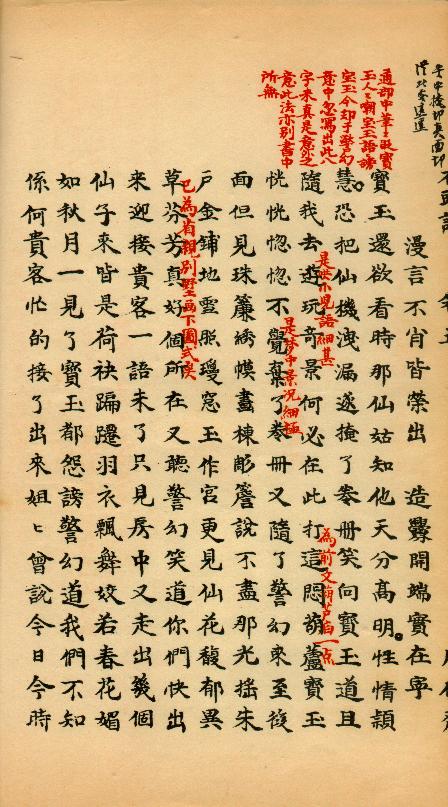 通部中筆〻貶寳
玉人〻嘲寳玉語謗
寳玉今却于警幻
意中忽寫出此
字來真是意外之
意此法亦別書中
所無
漫言不肖皆榮出　造釁開端實在寧
寳玉還欲看時那仙姑知他天分高明性情頴
慧恐把仙機洩漏遂掩了卷冊笑向寳玉道且
是哄小兒語細甚
為前文葫芦庙一点
隨我去遊玩奇景何必在此打這悶葫蘆寳玉
是夢中景況細極
恍恍惚惚不覺棄了卷冊又隨了警幻來至後
面但見珠簾綉幙畫棟彫簷說不盡那光摇朱
戶金鋪地雪照瓊窓玉作宮更見仙花馥郁異
已為省親別墅画下圖式矣
草芬芳真好個所在又聽警幻笑道你們快出
來迎接貴客一語未了只見房中又走出幾個
仙子來皆是荷袂蹁躚羽衣飄舞姣若春花媚
如秋月一見了寳玉都怨謗警幻道我們不知
係何貴客忙的接了出來姐〻曾說今日今時